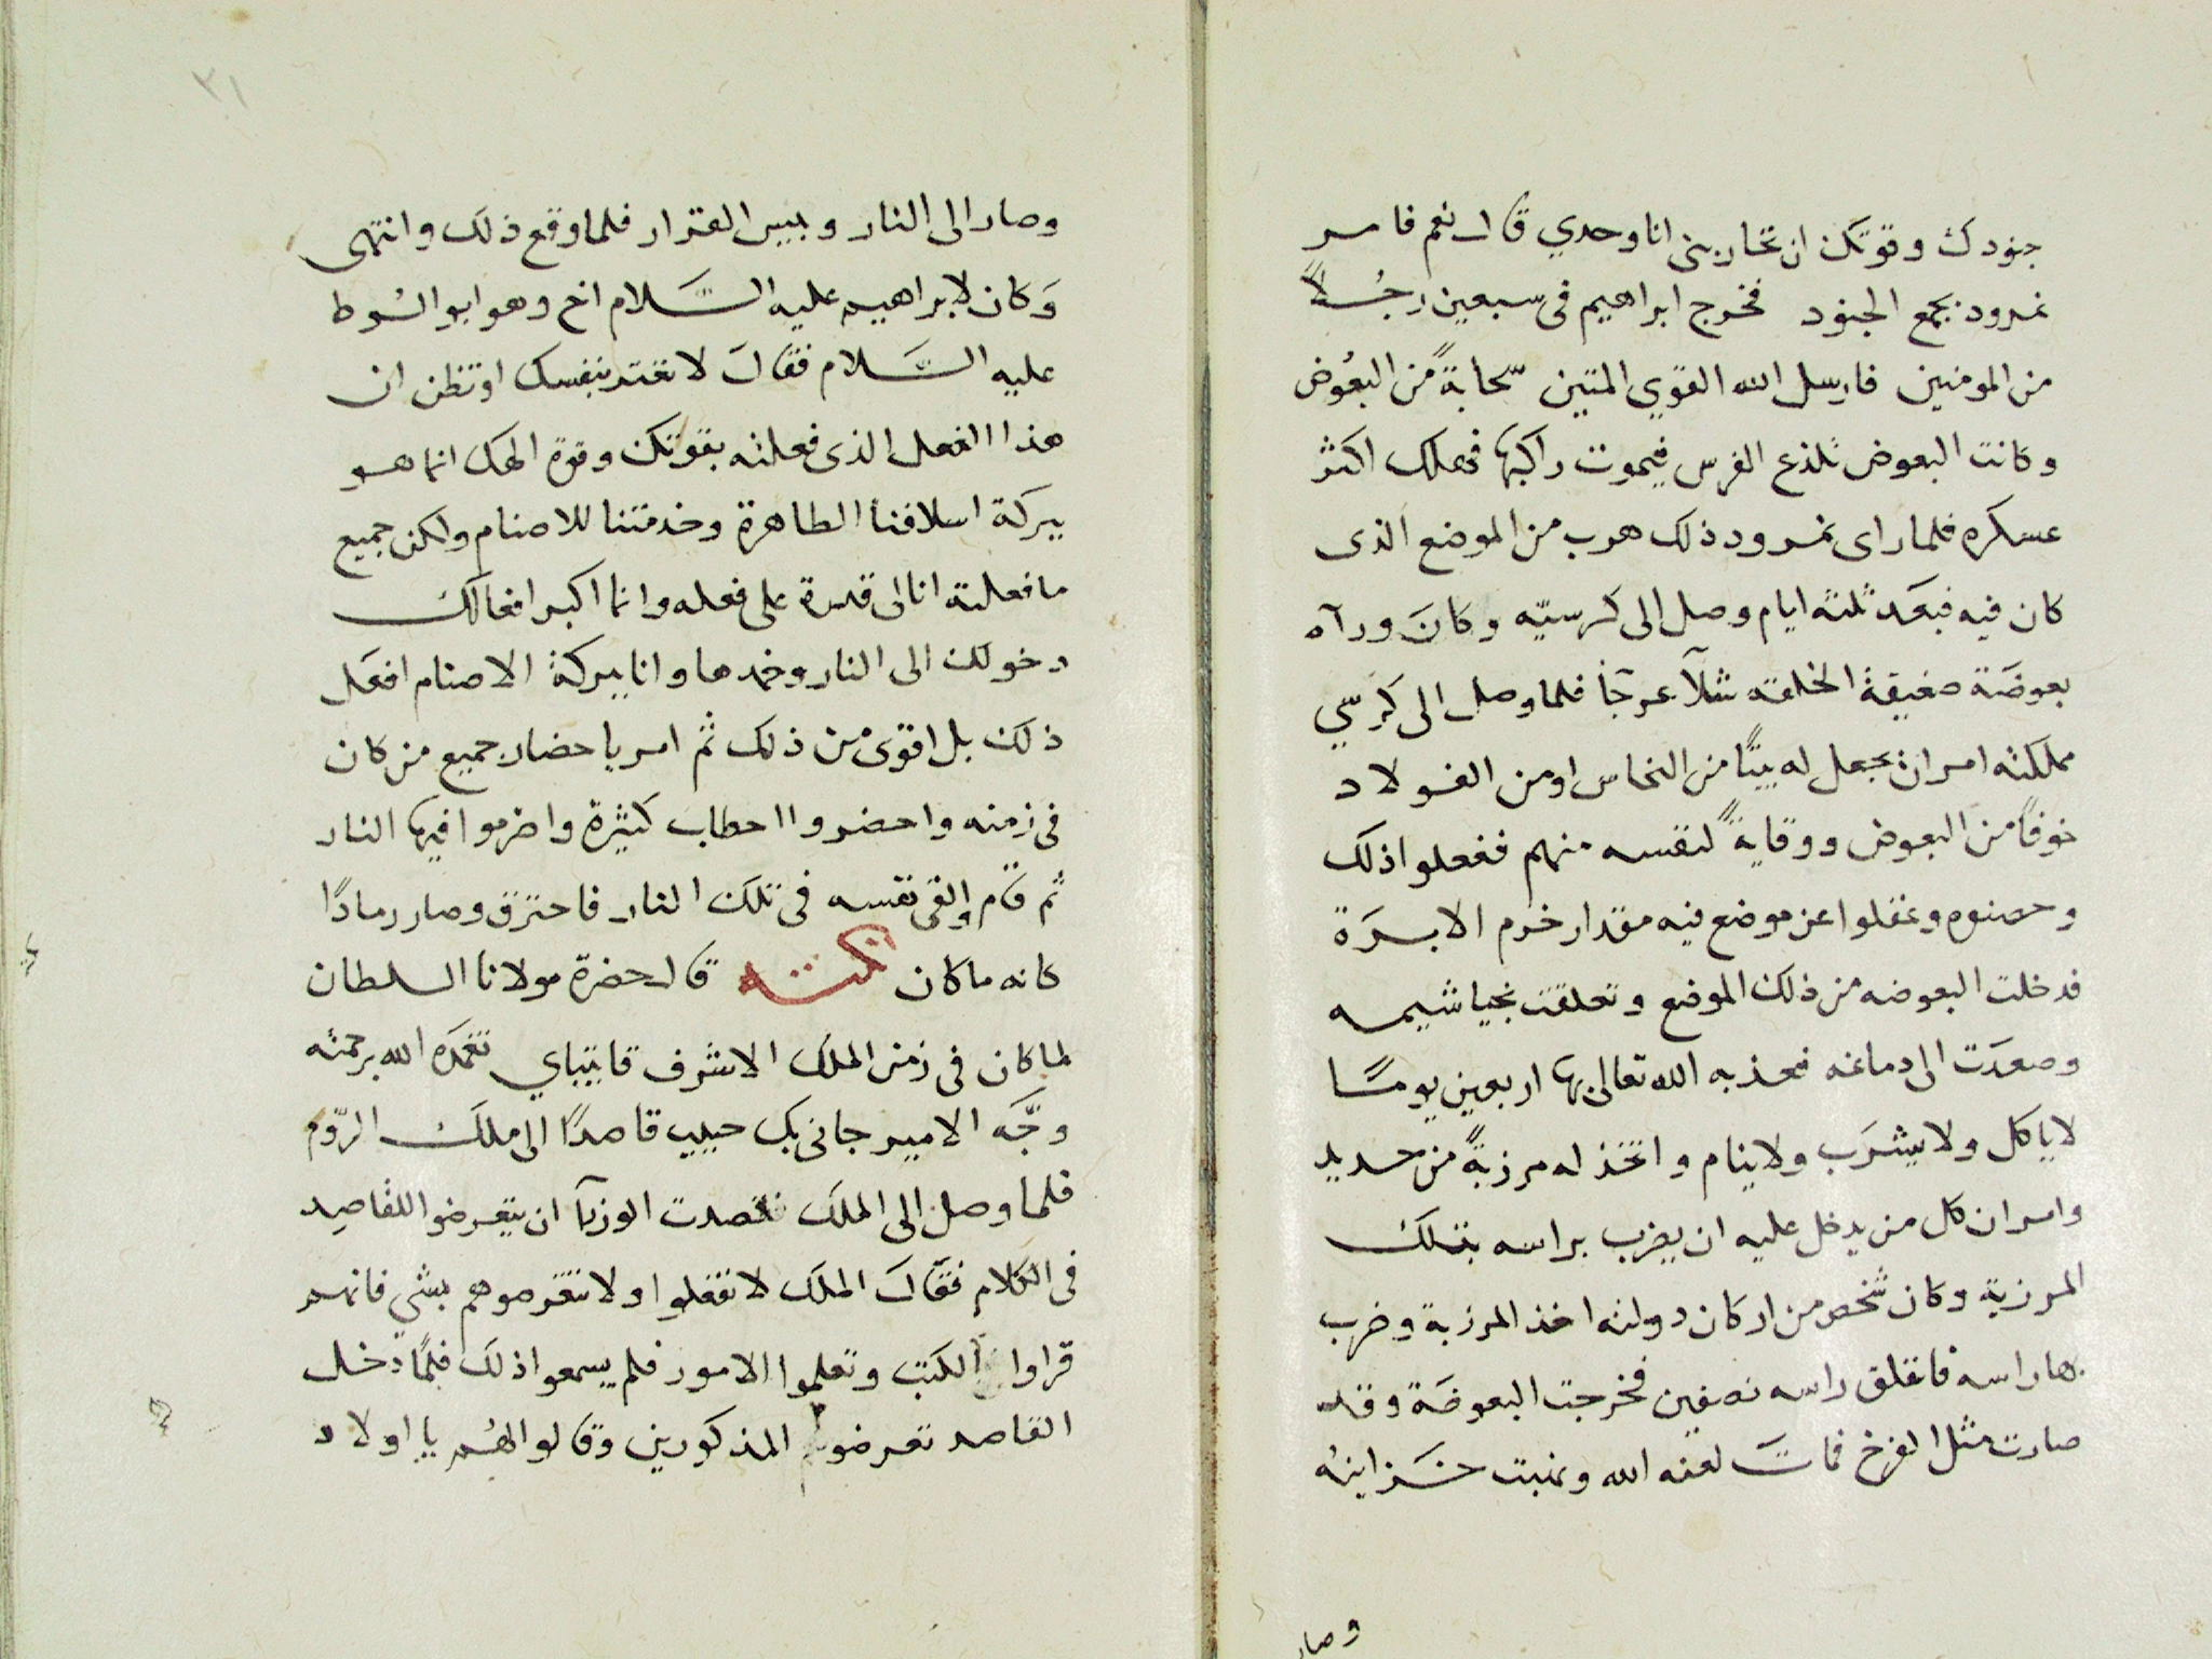 جنودك وقوتك ان تحاربنى انا وحدي قال نعم فامر
نمرود بجمع الجنود فخرج ابراهيم فى سبعين رجُلاً
من المومنين فارسل الله القوي المتين سّحابةً من البعُوض
وكانت البعوض تلذع الفرس فيموت راكبها فهلك اكثر
عسكره فلما راى نمرود ذلك هرب من الموضع الذى
كان فيه فبعَد ثلثة ايام وصل الى كرسيّه وكانَ ورآه
بعوضَة ضعيفة الخلقه شلآ عرجَا فلما وصل الى كرسّي
مملكته امر ان يجعل له بيتًا من النحاس او من الفولاد
خوفاً من البعوض ووقايةً لنفسه منهم ففعلوا ذلك
وحصنوه وغفلوا عن موضع فيه مقدار خرم الابرَة
فدخلت البعوضه من ذلك الموضع وتعلقت بخياشيمه
وصعدَت الى دماغه فعذبه الله تعالى بها اربعين يومًا
لا ياكل ولا يشرَب ولا ينام واتخذ له مرزبةً من حديد
وامر ان كل من يدخل عليه ان يضرب براسه بتلك
المرزبة وكان شخص من اركان دولته اخذ المرزبة وضرب
بها راسه فانفلق راسه نصفين فخرجت البعوضَة وقد
صارت مثل الفرخ فماتَ لعنه الله ونهبت خزاينه
وصار
٣١
وصار الى النار وبيس القرار فلما وقع ذلك وانتهى
وَكان لابراهيم عليه السَّلام اخ وهو ابو لسُوط
عليه السَّلام فقالَ لا تعتد بنفسك او تظن ان
هذا الفعل الذى فعلته بقوتك وقوة الهك انما هو
ببركة اسلافنا الطاهرة وخدمتنا للاصنام ولكن جميع
ما فعلته انا لى قدرة على فعله وانما اكبر افعالك
دخولك الى النار وخمدها وانا ببركة الاصنام افعَل
ذلك بل اقوى من ذلك ثم امر باحضار جميع من كان
فى زمنه واحضروا احطاب كثيرة واضرموا فيها النار
ثم قام والقى نفسه فى تلك النار فاحترق وصار رمادًا
كانه ما كان نكتــه قال حضرة مولانا السلطان
لما كان فى زمن الملك الاشرف قايتباي تغمده الله برحمته
وجَّه الامير جانى بك حبيب قاصدًا الى ملك الرّوم
فلما وصل الى الملك قصدت الوزرآ ان يتعرضوا للقاصد
فى الكلام فقالَ الملك لا تفعلوا ولا تتعرضوهم بشي فانهم
قراوا الكتب وتعلموا الامور فلم يسمعوا ذلك فلمّا دخل
القاصد تعرضوا المذكورين وقالوا لهُم يا اولاد